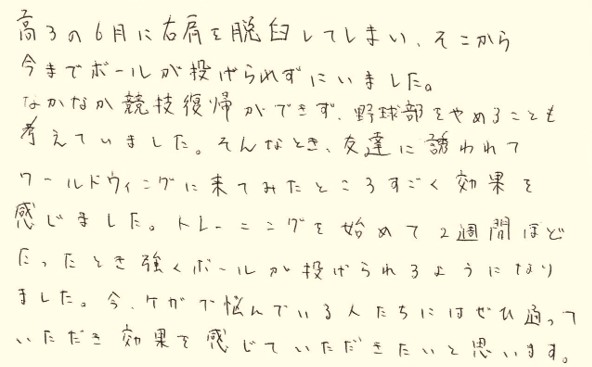 高3の6月に右肩を脱臼してしまい、そこから
今までボールが投げられずにいました。
なかなか競技復帰ができず、野球部をやめることも
考えていました。そんなとき、友達に誘われて
ワールドウィングに来てみたところすごく効果を
感じました。トレーニングを始めて2週間ほど
たったとき強くボールが投げられるようになり
ました。今、ケガで悩んでいる人たちにはぜひ通って
いただき効果を感じていただきたいと思います。